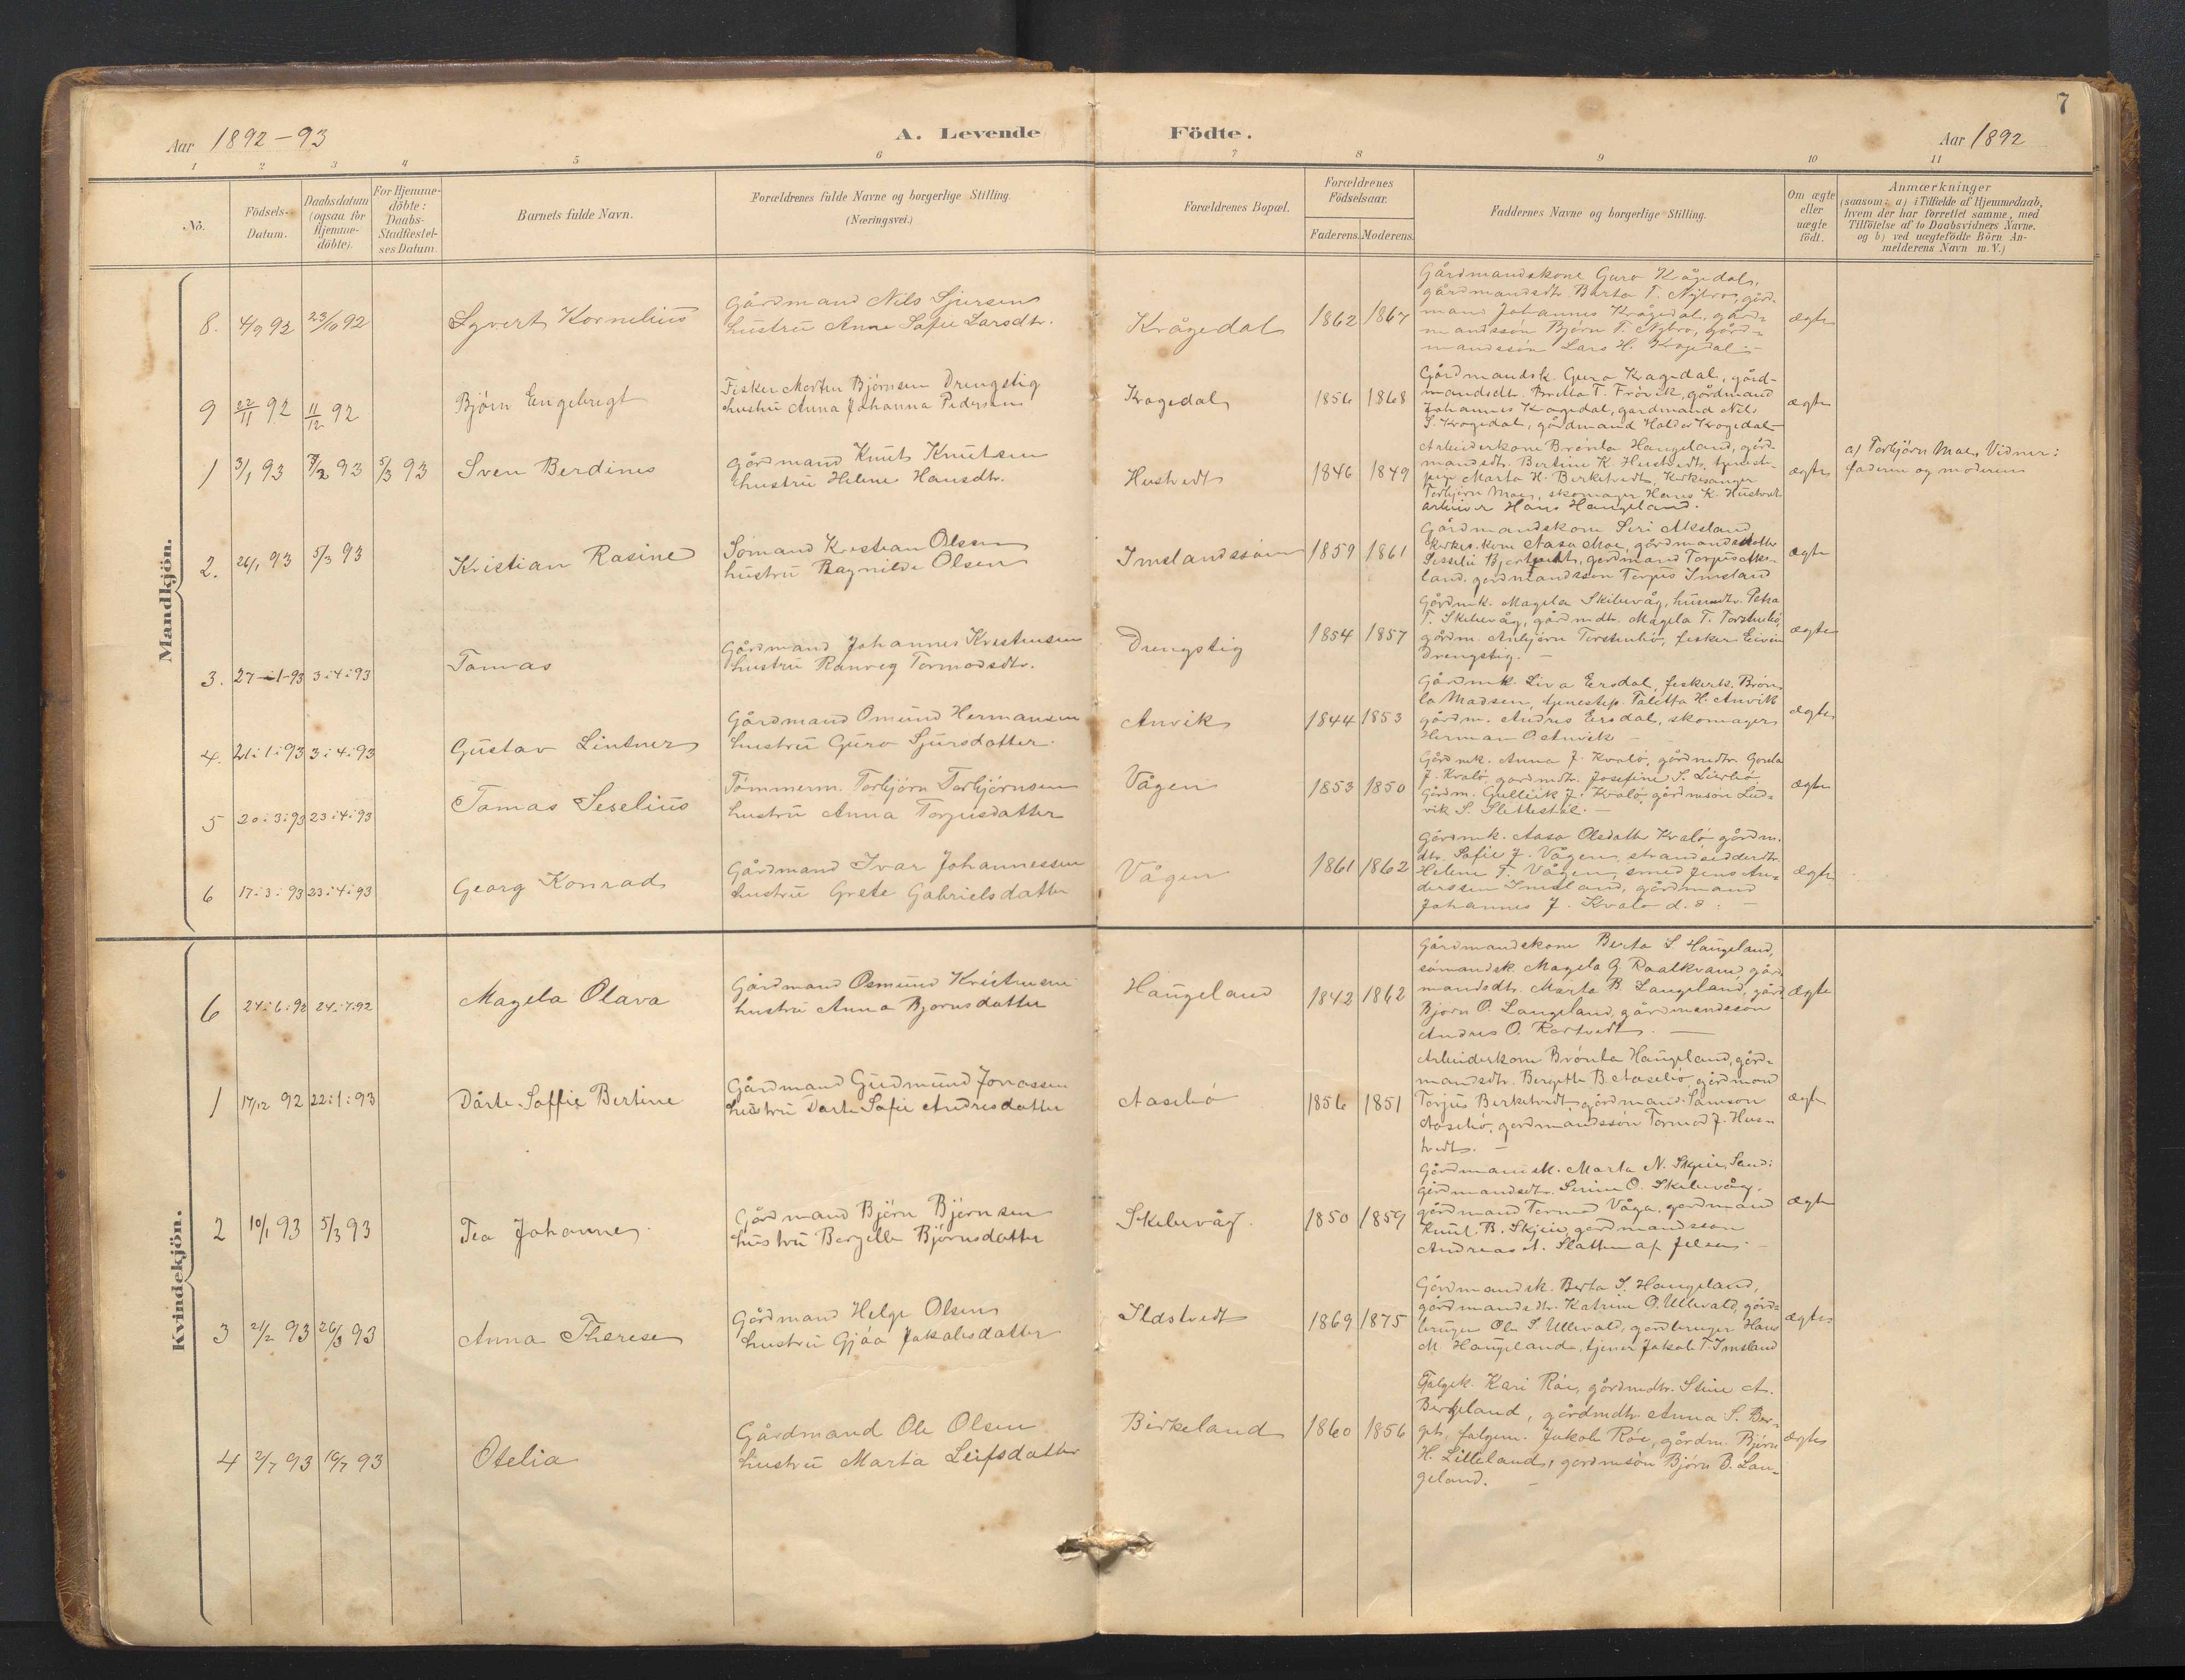 7
Aar 1892-93
A. Levende Födte.
Aar 1892
1 2 3 4 5 6 7 8 9 10 11
No.
Födsels-Datum.
Daabsdatum (ogsaa for Hjemme-döbte).
For Hjemme-döbte: Daabs-Stadfæstel-ses Datum.
Barnets fulde Navn.
Forældrenes fulde Navne og borgerlige Stilling.
(Næringsvei.)
Forældrenes Bopæl.
Forældrenes Födselsaar.
Faderens. Moderens.
Faddernes Navne og borgerlige Stilling.
Om ægte eller uægte födt.
Anmærkninger
(saasom: a) i Tilfælde af Hjemmedaab,
hvem der har forrettet samme, med
Tilföielse af to Daabsvidners Navne,
og b) ved uægtefödte Börn An-
melderens Navn m. V.)
Mandkjön.
8. 4/9 92 23/10 92 Syvert Kornelius
Gårdmand Nils Sjursen
hustru Anne Sofie Larsdtr.
Krågedal 1862 1867
Gårdmandskone Guro Krågedal,
gårdmandsdtr. Berta T. Nybro, gård-
mand Johannes Krågedal, gård-
mandssön Björn T. Nybro, gård-
mandssön Lars H. Krogedal.-
ægte
9 22/11 92 11/12 92 Björn Engebregt
Fisker Morten Björnsen Drengstig
hustru Anna Johanna Pedersen
Kragedal 1856 1868
Gårdmandsk. Guro Kragedal, gård-
mandsdtr. T. Frövik, gårdmand
Johannes Kragedal, gardmand Nils
S. Krogedal, gårdmand Halder Krogedal
ægte
1 3/1 93 7/2 93 5/3 93 Sven Berdines
Gårdmand Knut Knutsen
hustru Helene Hansdtr.
Hustvedt 1846 1849
Arbeiderkone Brönla Hangeland, gård-
mandsdtr. Bertine K. Hustvedt, tjenest-
pige Marta H. Birketvedt, Kirkesanger
Torbjörn Moe, skomager Hans K. Hustvedt
arbeider Hans Hangeland.
ægte
a) Torbjörn Moe, Vidner:
faderen og moderen
2. 26/1 93 5/3 93 Kristian Rasine
Sömand Kristian Olsen
hustru Ragnilde Olsen
Imslandssjöen 1859 1861
Gårdmandskone Siri Aksland,
Kirkes. Kone Aasa Moe, gårdmandsdatter
gardmand Torpus Aks-
land, gardmandssön Torpus Imsland
ægte
3. 27-1-93 3:4:93 Tomas
Gårdmand Johannes Kristensen
hustru Ranveg Tormodsdtr.
Drengstig 1854 1857
Gårdmk. Magela Skiluvåg, Petra
T. Skiluvåg, gårdmdtr. Magela T. Torstenbö,
gårdm. Anbjörn Torstenbö, fisker Eivin
Drengstig. -
ægte
4. 21:1:93 3:4:93 Gustav Lintner
Gårdmand Omund Hermansen
hustru Guro Sjursdatter
Anvik 1844 1853
Gårdmk. Liva Eersdal, fiskerk. Brön-
la Madsen, tjenestep. Taletta H. Anvik
gårdm. Andres Eersdal, skomager
Herman O. Anvik
ægte
5 20:3:93 23:4:93 Tomas Seselius
Tömmerm. Torbjörn Torbjörnsen
hustru Anna Torpusdatter
Vågen 1853 1850
Gårdmk. Anna J. Kvalö, gårdmdtr. Gurela
J. Kvalö, gardmdtr. Josefine S.
Gårdm. Gulleik J. Kvalö, gårdmsön Lud-
vik S. -
ægte
6 17:3:93 23:4:93 Georg Konrad
Gårdmand Ivar Johannessen
hustru Grete Gabrielsdatter
Vågen 1861 1862
Gårdmk. Aasa Olsdatter Kvalö, gårdm.
dtr. Sofie J. Vågen, strandsidderdtr.
Helene T. Vågen, smed Jens An-
derssen Imsland, gårdmand
Johannes J. Kvalö d.s.: -
ægte
Kvindekjön.
6 24:6:92 24:7:92 Magela Olava
Gårdmand Osmund Kristensen
hustru Anna Bjornsdatter
Hangeland 1842 1862
Gårdmandskone Berta S. Hangeland,
sömandsk. Magela G. Raalkvam, gård-
mandsdtr. Marta B. Langeland, gård
Bjorn O. Langeland, gårdmandssön
Andres O. Rartvedt. -
ægte
1 17/12 92 22:1:93 Dårte Soffie Bertine
Gårdmand Gudmund Jonassen
hustru Darte Sofie Andresdatter
Aasebö 1856 1851
Arbeiderkone Brönla Hangeland, gård-
mandsdtr. Bergette B. Aasebö, gårdmand
Torjus Birketvedt, gårdmand Samson
Aasebö, gardmandssön Tormod J. Hus-
tvedt. -
ægte
2 10/1 93 5/3 93 Tea Johanne
Gårdmand Björn Björnsen
hustru Bergelle Björnsdatter
Skiluvåg. 1850 1859
Gårdmandsk. Marta N. Skjeie, Sand:
gårdmandsdtr. Serine O. Skiluvåg,
gårdmand Tormod Våga, gardmand
Knut B. Skjeie, gardmandssön
Andreas A. Slatten af Jelsen. -
ægte
3 21/2 93 26/3 93 Anna Therese
Gårdmand Helge Olsen
hustru Gjöa Jakobsdatter
Ilastvedt 1869 1875
Gårdmandsk. Berta S. Hangeland,
gårdmandsdtr. Katrine O. Ullevald, gård-
bruger Ole S. Ullevald, gårdbruger Hans
M. Hangeland, tjener Jakob T. Imsland
ægte
4 2/7 93 16/7 93 Otelia
Gårdmand Ole Olsen
hustru Marta Leifsdatter
Birkeland 1860 1856
Falgek. Kari Röe, gårdmdtr. Stine A.
Bergeland, gårdmdtr. Anna S. Ber-
ge, falgem. Jakob Röe, gårdm. Björn
H. Lilleland, gardmsön Björn B. Lan-
geland. -
ægte